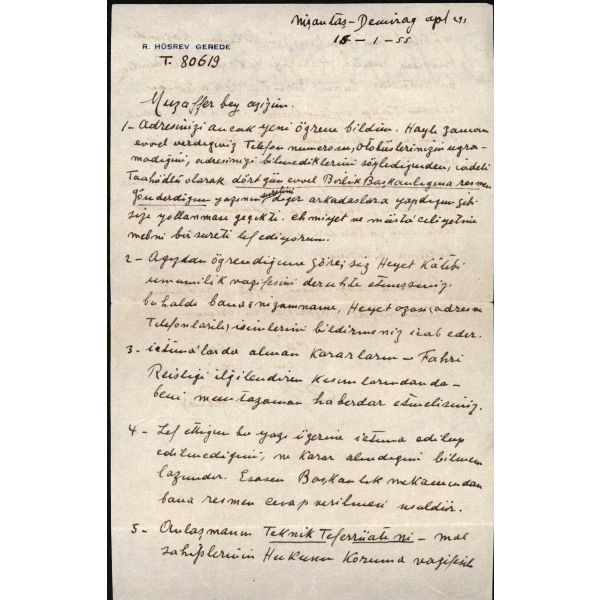 Nişantaş - Demirağ apt
18 - 1 - 55
R. HÜSREV GEREDE
T. 80619
Muzaffer bey azizim.
1 - Adresinizi ancak yeni öğrene bildim. Haylı zaman
evvel verdiğiniz Telefon numerosu, otobüslerinizin uğra
madığını, adresinizi bilmediklerini söylediğinden, iadeli
Taahhütlü olarak dört gün evvel Birlik Başkanlığına resmen
gönderdiğim yazının suretini diğer arkadaşlara yaptığım gibi
size yollanması gecikti. ehmiyet ve müstaceliyetine
mebni bir sureti lef ediyorum.
2 - Ağızdan öğrendiğime göre, siz Heyet Kâtibi
umumilik vazifesini deruhte etmişsiniz
bu halde bana nizamname, Heyet azası, adres ve
Telefonlarile, isimlerini bildirmeniz icab eder.
3 - ictima'larda alınan kararların - Fahri
Reisliği ilgilendiren kısımlarından da -
beni muntazaman haberdar etmelisiniz.
4 - Lef ettiğim bu yazı üzerine ictima edilup
edilmediğini, ne karar alındığını bilmem
lazımdır. Esasen Başkanlık makamından
bana resmen cevap verilmesi usuldür.
5 - Anlaşmanın Teknik Teferrüatı ni - mal
sahiplerinin Hukukunu Koruma vazifesile